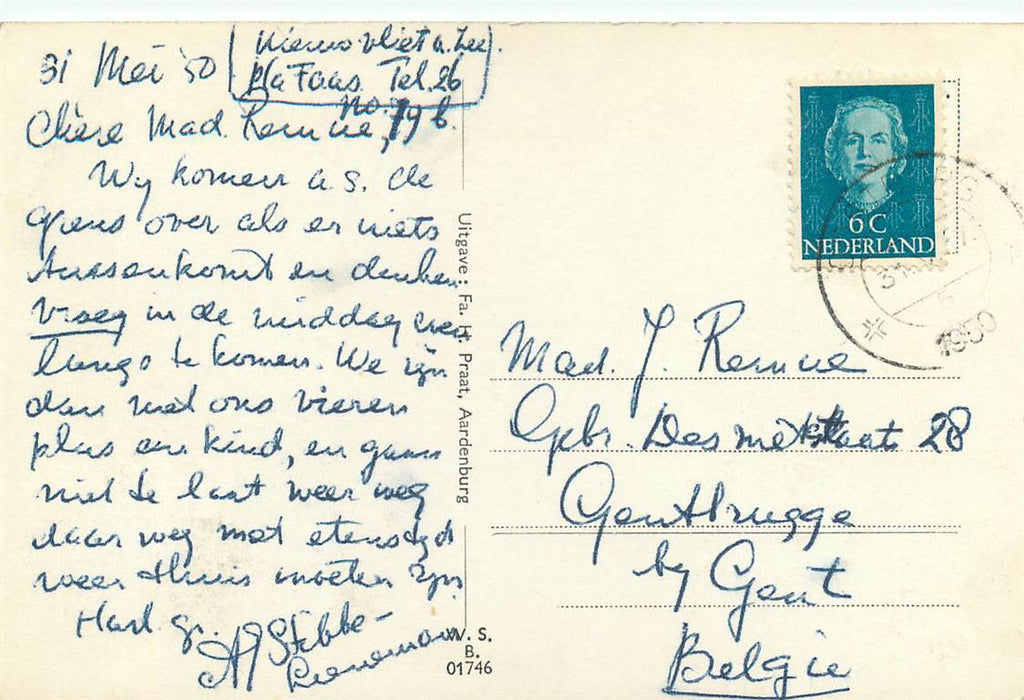 31 Mei '50 (Nieuwvliet a. Zee).
p/a Faas. Tel. 26
no. 19 b.
Chère Mad. Remue,
Wy komen a.s. de
grens over als er niets
tussenkomt en denken
vroeg in de middag
langs te komen. We zijn
dan met ons vieren
plus een kind, en gaan
niet te laat weer weg
daar weg met etenstijd
weer thuis moeten zijn
Hart. gr.
Uitgave : Fa. H. Praat, Aardenburg
V.V. S.
B.
01746
6 C
NEDERLAND
1950
Mad. J. Remue
Gebr. Desmetstraat 28
Gentbrugge
by Gent
Belgie